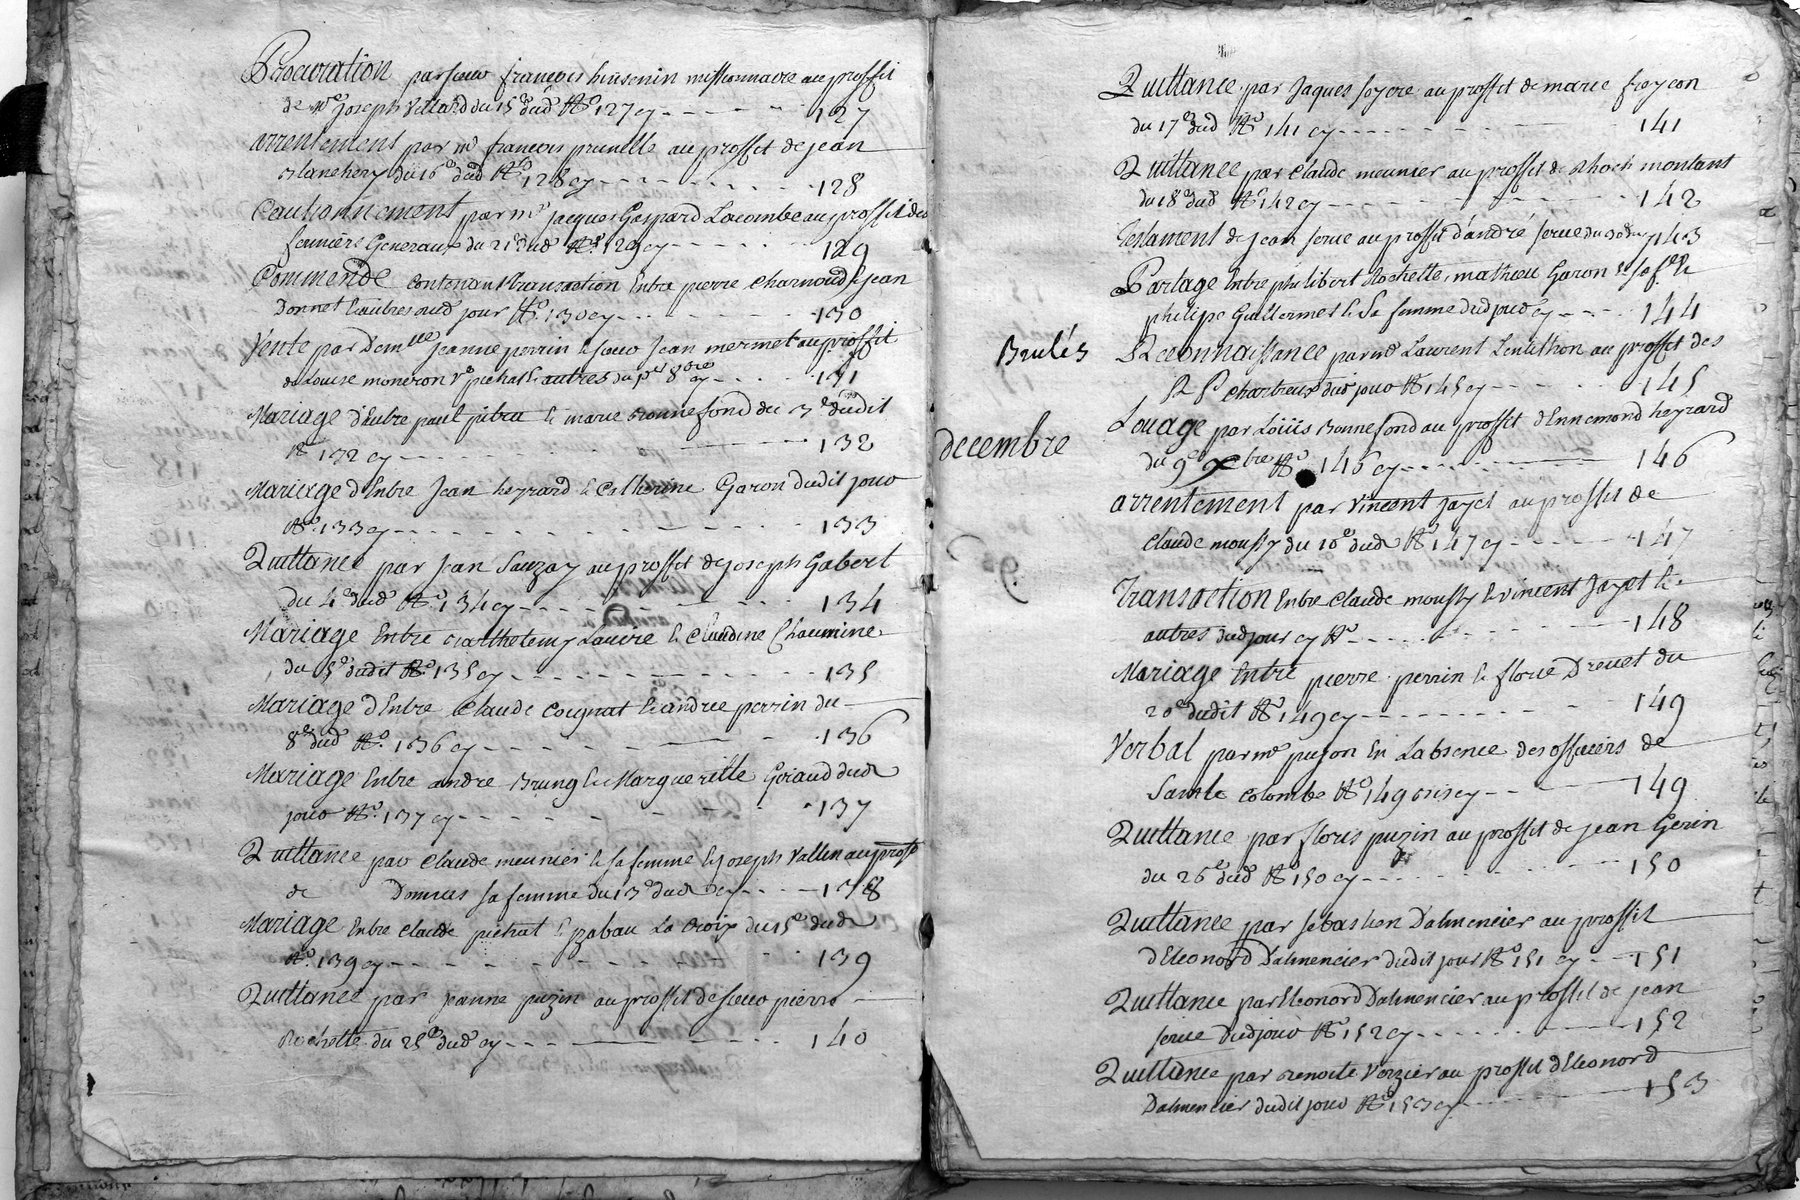 Procuration par sieur françois hinsenin missionnaire au proffit
de Mr Joseph Villard du 15e dud No 127 cy - - - - 127
arrentement par Mr françois prunelle au proffit de jean
du 16e dud No 128 cy - - - - 128
Cautionnement par Mr jacques Gaspard Lacombe au proffit des
fermiers Generaux du 21e dud No 129 cy - - - - 129
Commende contenant transaction Entre pierre Charnoud & jean
Donnet & autres dud jour No 130 cy - - - - 130
Vente par Demlle Jeanne perrin & sieur Jean mermet au proffit
de Louise moneron Ve pichat & autres du pr 8bre cy - - - 131
Mariage d'Entre paul & marie Bonnefond du 3e dudit
No 132 cy - - - - 132
Mariage d'Entre Jean heyrard & Catherine Garon dudit jour
No 133 cy - - - - 133
Quittance par Jean Sauzay au proffit de joseph Gabert
du 4e dud No 134 cy - - - - 134
Mariage Entre Barthelemy & Claudine Chaumine
du 5e dudit No 135 cy - - - - 135
Mariage d'Entre Claude Coignat & andree perrin du
8e dud No 136 cy - - - - 136
Mariage Entre andre & Margueritte Giraud dud
jour No 137 cy - - - - 137
Quittance par Claude meunier & sa femme & joseph Vallin au proffit
de Donnus sa femme du 13e dud cy - - - - 138
Mariage Entre Claude pichat & yzabau La Croix du 15e dud
No 139 cy - - - - 139
Quittance par jeanne puzin au proffit de sieur pierre
Rochette du 25e dud cy - - - - 140
Quittance par Jaques au proffit de marie freycon
du 17e dud No 141 cy - - - - 141
Quittance par Claude meunier au proffit de Rhoch montant
du 18e dud No 142 cy - - - - 142
Testament de Jean serve au proffit d'andré serve du cy 143
Partage Entre philibert Rochette, mathieu Garon
philipe Guillermet & Sa femme dud jour cy - - - - 144
Brulés
Reconnaissance par Mr Laurent Lentithon au proffit des
R P chartreux dud jour No 145 cy - - - - 145
decembre
Louage par Loüis Bonnefond au proffit d'Ennemond heyrard
du 9e Xbre No 146 cy - - - - 146
arrentement par Vincent Jayet au proffit de
Claude moussy du 10e dud No 147 cy - - - - 147
Transaction Entre Claude moussy & Vincent Jayet &
autres dud jour cy No - - - - 148
Mariage Entre pierre perrin & florie Drevet du
20e dudit No 149 cy - - - - 149
Verbal par Mr pujon En Labsence des officiers de
Sainte Colombe No 149 bis cy - - - - 149
Quittance par floris puzin au proffit de jean Gerin
du 26e dud No 150 cy - - - - 150
Quittance par sebastien Dalmencier au proffit
d'Eleonord Dalmencier dudit jour No 151 cy - - - 151
Quittance par Eleonord Dalmencier au proffit de jean
serve dud jour No 152 cy - - - - 152
Quittance par Benoite Verzier au proffit d'Eleonord
Dalmencier dudit jour No 153 cy - - - - 153